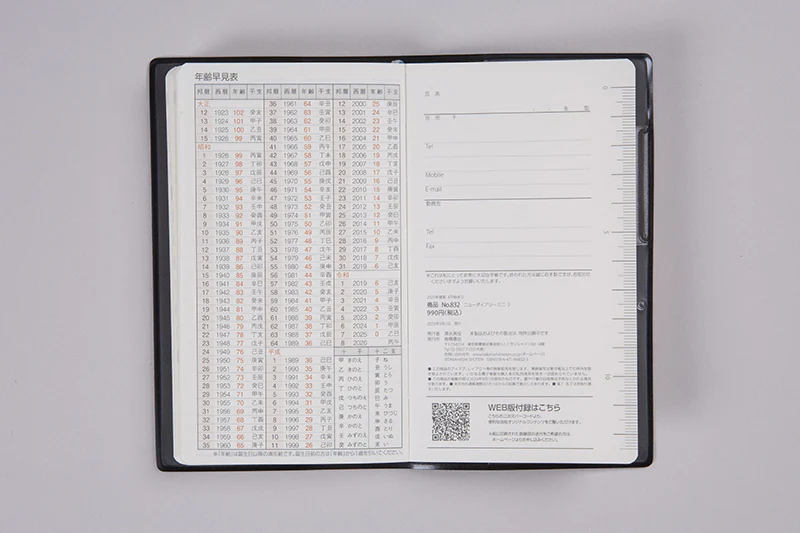 年齢早見表
邦暦 西暦 年齢 干支
大正
12 1923 102 癸亥
13 1924 101 甲子
14 1925 100 乙丑
15 1926 99 丙寅
昭和
1 1926 99 丙寅
2 1927 98 丁卯
3 1928 97 戊辰
4 1929 96 己巳
5 1930 95 庚午
6 1931 94 辛未
7 1932 93 壬申
8 1933 92 癸酉
9 1934 91 甲戌
10 1935 90 乙亥
11 1936 89 丙子
12 1937 88 丁丑
13 1938 87 戊寅
14 1939 86 己卯
15 1940 85 庚辰
16 1941 84 辛巳
17 1942 83 壬午
18 1943 82 癸未
19 1944 81 甲申
20 1945 80 乙酉
21 1946 79 丙戌
22 1947 78 丁亥
23 1948 77 戊子
24 1949 76 己丑
25 1950 75 庚寅
26 1951 74 辛卯
27 1952 73 壬辰
28 1953 72 癸巳
29 1954 71 甲午
30 1955 70 乙未
31 1956 69 丙申
32 1957 68 丁酉
33 1958 67 戊戌
34 1959 66 己亥
35 1960 65 庚子
邦暦 西暦 年齢 干支
36 1961 64 辛丑
37 1962 63 壬寅
38 1963 62 癸卯
39 1964 61 甲辰
40 1965 60 乙巳
41 1966 59 丙午
42 1967 58 丁未
43 1968 57 戊申
44 1969 56 己酉
45 1970 55 庚戌
46 1971 54 辛亥
47 1972 53 壬子
48 1973 52 癸丑
49 1974 51 甲寅
50 1975 50 乙卯
51 1976 49 丙辰
52 1977 48 丁巳
53 1978 47 戊午
54 1979 46 己未
55 1980 45 庚申
56 1981 44 辛酉
57 1982 43 壬戌
58 1983 42 癸亥
59 1984 41 甲子
60 1985 40 乙丑
61 1986 39 丙寅
62 1987 38 丁卯
63 1988 37 戊辰
64 1989 36 己巳
平成
1 1989 36 己巳
2 1990 35 庚午
3 1991 34 辛未
4 1992 33 壬申
5 1993 32 癸酉
6 1994 31 甲戌
7 1995 30 乙亥
8 1996 29 丙子
9 1997 28 丁丑
10 1998 27 戊寅
11 1999 26 己卯
邦暦 西暦 年齢 干支
12 2000 25 庚辰
13 2001 24 辛巳
14 2002 23 壬午
15 2003 22 癸未
16 2004 21 甲申
17 2005 20 乙酉
18 2006 19 丙戌
19 2007 18 丁亥
20 2008 17 戊子
21 2009 16 己丑
22 2010 15 庚寅
23 2011 14 辛卯
24 2012 13 壬辰
25 2013 12 癸巳
26 2014 11 甲午
27 2015 10 乙未
28 2016 9 丙申
29 2017 8 丁酉
30 2018 7 戊戌
31 2019 6 己亥
令和
1 2019 6 己亥
2 2020 5 庚子
3 2021 4 辛丑
4 2022 3 壬寅
5 2023 2 癸卯
6 2024 1 甲辰
7 2025 0 乙巳
8 2026 丙午
十干 十二支
甲 きのえ 子 ね
乙 きのと 丑 うし
丙 ひのえ 寅 とら
丁 ひのと 卯 う
戊 つちのえ 辰 たつ
己 つちのと 巳 み
庚 かのえ 午 うま
辛 かのと 未 ひつじ
壬 みずのえ 申 さる
癸 みずのと 酉 とり
戌 いぬ
亥 い
※「年齢」は誕生日以降の満年齢です。誕生日前の方は「年齢」から1歳を引いてください。
氏名
年 型
住所 〒
Tel
Mobile
E-mail
勤務先
Tel
Fax
商品 No.832 ニューダイアリー ミニ 3
990円(税込)
WEB版付録はこちら
0
5
10